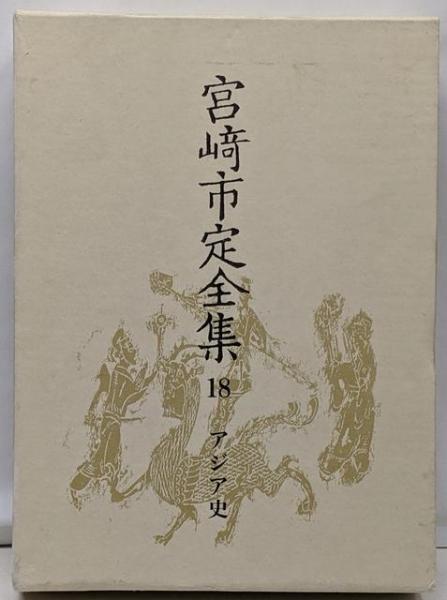 宮﨑市定全集
18
アジア史